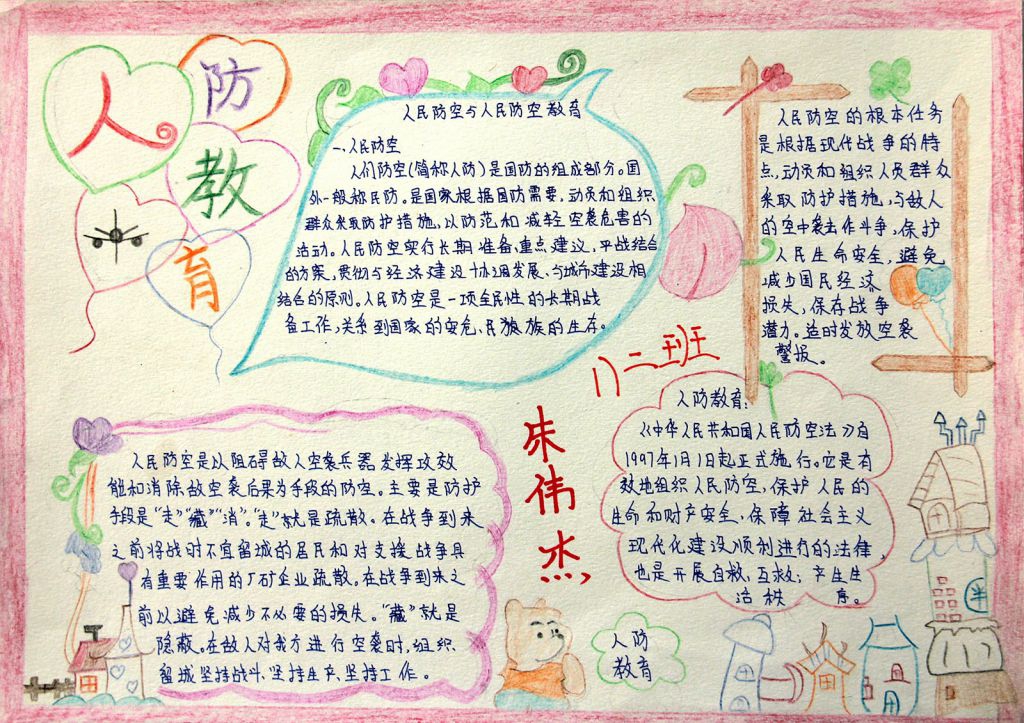 人防
教
育
人民防空与人民防空教育
一、人民防空
人们防空(简称人防)是国防的组成部分。国
外一般称民防。是国家根据国防需要,动员和组织
群众采取防护措施,以防范和减轻空袭危害的
活动。人民防空实行长期准备,重点建议,平战结合
的方案,贯彻与经济建设协调发展、与城市建设相
结合的原则。人民防空是一项全民性的长期战
备工作,关系到国家的安危,民族族的生存。
人民防空的根本任务
是根据现代战争的特
点,动员和组织人员群众
采取防护措施,与敌人
的空中袭击作斗争,保护
人民生命安全,避免
减少国民经济
损失,保存战争
潜力。适时发放空袭
警报。
八二班
朱伟杰,
人民防空是以阻碍敌人空袭兵器发挥攻效
能和消除敌空袭后果为手段的防空。主要是防护
手段是“走”“藏”“消”。“走”就是疏散。在战争到来
之前将战时不宜留城的居民和对支援战争具
有重要作用的厂矿企业疏散。在战争到来之
前以避免减少不必要的损失。“藏”就是
隐蔽。在敌人对我方进行空袭时,组织
留城坚持战斗、坚持生产、坚持工作。
人防教育:
《中华人民共和国人民防空法》自
1997年1月1日起正式施行。它是有
效地组织人民防空,保护人民的
生命和财产安全,保障社会主义
现代化建设顺利进行的法律,
也是开展自救,互救;产生生
活秩序。
人防
教育